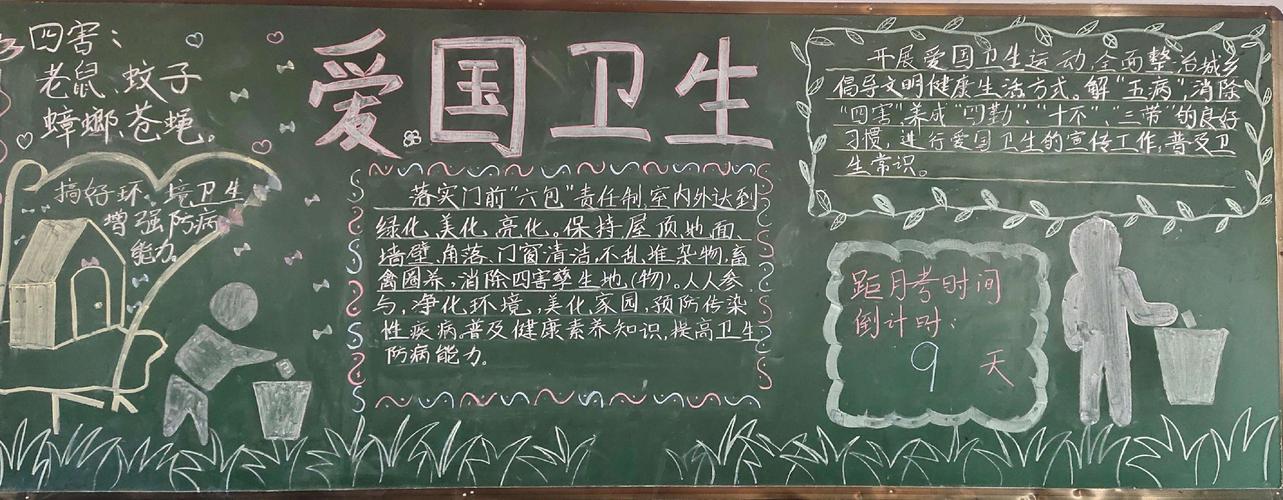 四害：
老鼠、蚊子
蟑螂、苍蝇。
搞好环境卫生
增强防病
能力。
爱国卫生
落实门前“六包”责任制,室内外达到
绿化、美化、亮化。保持屋顶、地面、
墙壁、角落、门窗清洁,不乱堆杂物,畜
禽圈养,消除四害孳生地(物)。人人参
与,净化环境,美化家园,预防传染
性疾病,普及健康素养知识,提高卫生
防病能力。
开展爱国卫生运动,全面整治城乡
倡导文明健康生活方式。解“五病”消除
“四害”,养成“四勤”、“十不”、“三带”的良好
习惯,进行爱国卫生的宣传工作,普及卫
生常识。
距月考时间
倒计时：
9 天